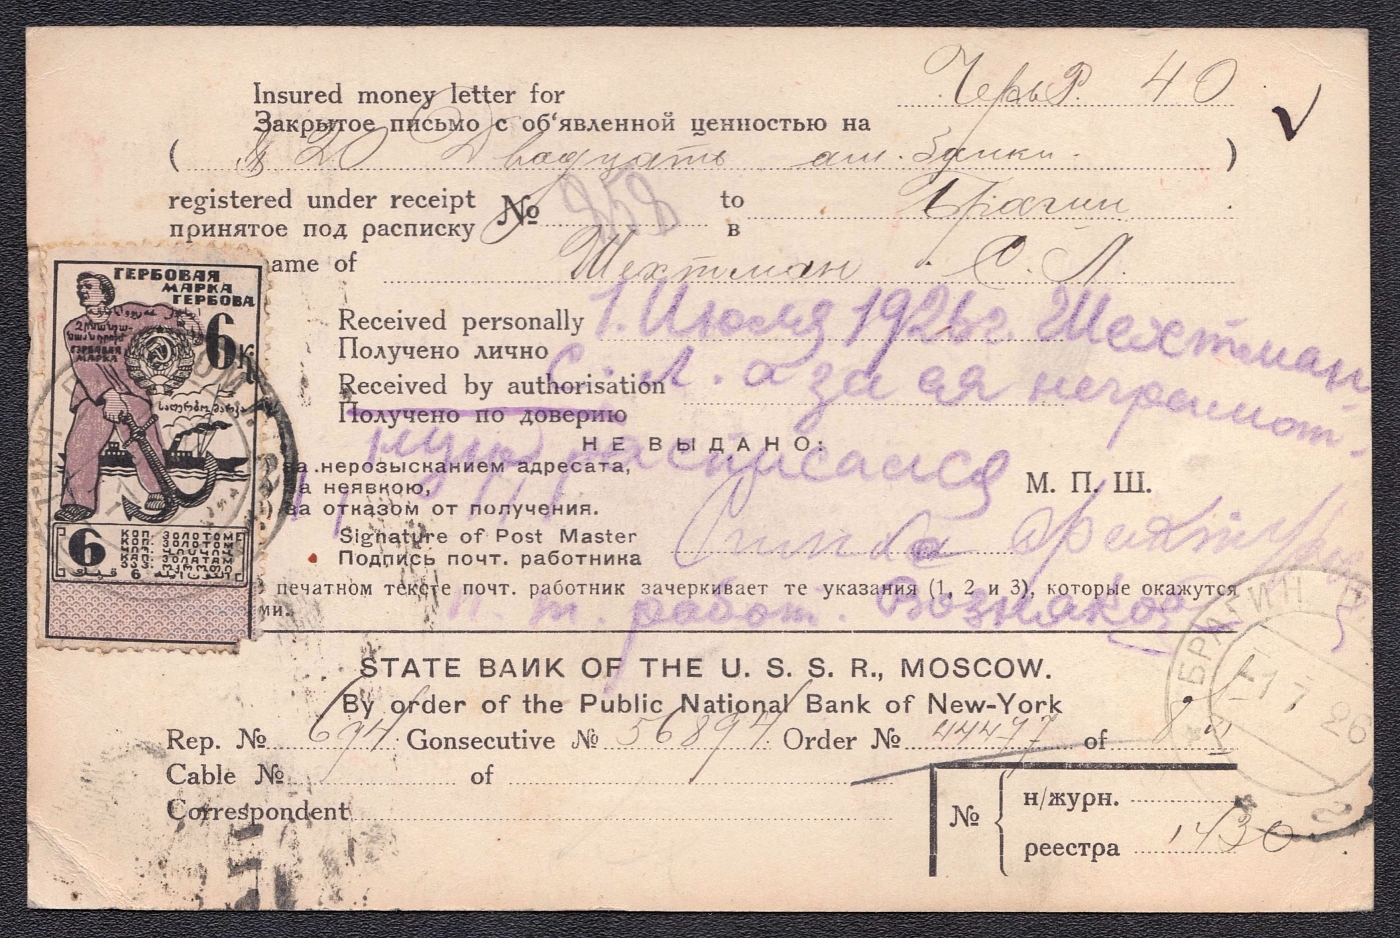 Черв. 40
Insured money letter for
Закрытое письмо с об'явленной ценностью на
( $ 20 Двадцать ам. )
registered under receipt № 252 to Брагин
принятое под расписку в
ame of Шехтман С. Л.
Received personally 1. Июля 1926 г. Шехтман
Получено лично С. Л. а за ая неграмот-
Received by authorisation
Получено по доверию расписался
НЕ ВЫДАНО:
за нерозысканием адресата,
а неявкою,
) за отказом от получения.
М. П. Ш.
Signature of Post Master
Подпись почт. работника
печатном тексте почт. работник зачеркивает те указания (1, 2 и 3), которые окажутся
ми.
п. т. работ.
STATE BAИK OF THE U. S. S. R., MOSCOW.
By order of the Public National Bank of New-York
Rep. № 694 Gonsecutive № 56894 Order № 44477 of
Cable № of
Correspondent
№ н/журн.
реестра 1430
ГЕРБОВАЯ
МАРКА
ГЕРБОВА
6 к
ГЕРБОВАЯ
МАРКА
6 КОП. ЗОЛОТОМ
БРАГИН
1 7 26